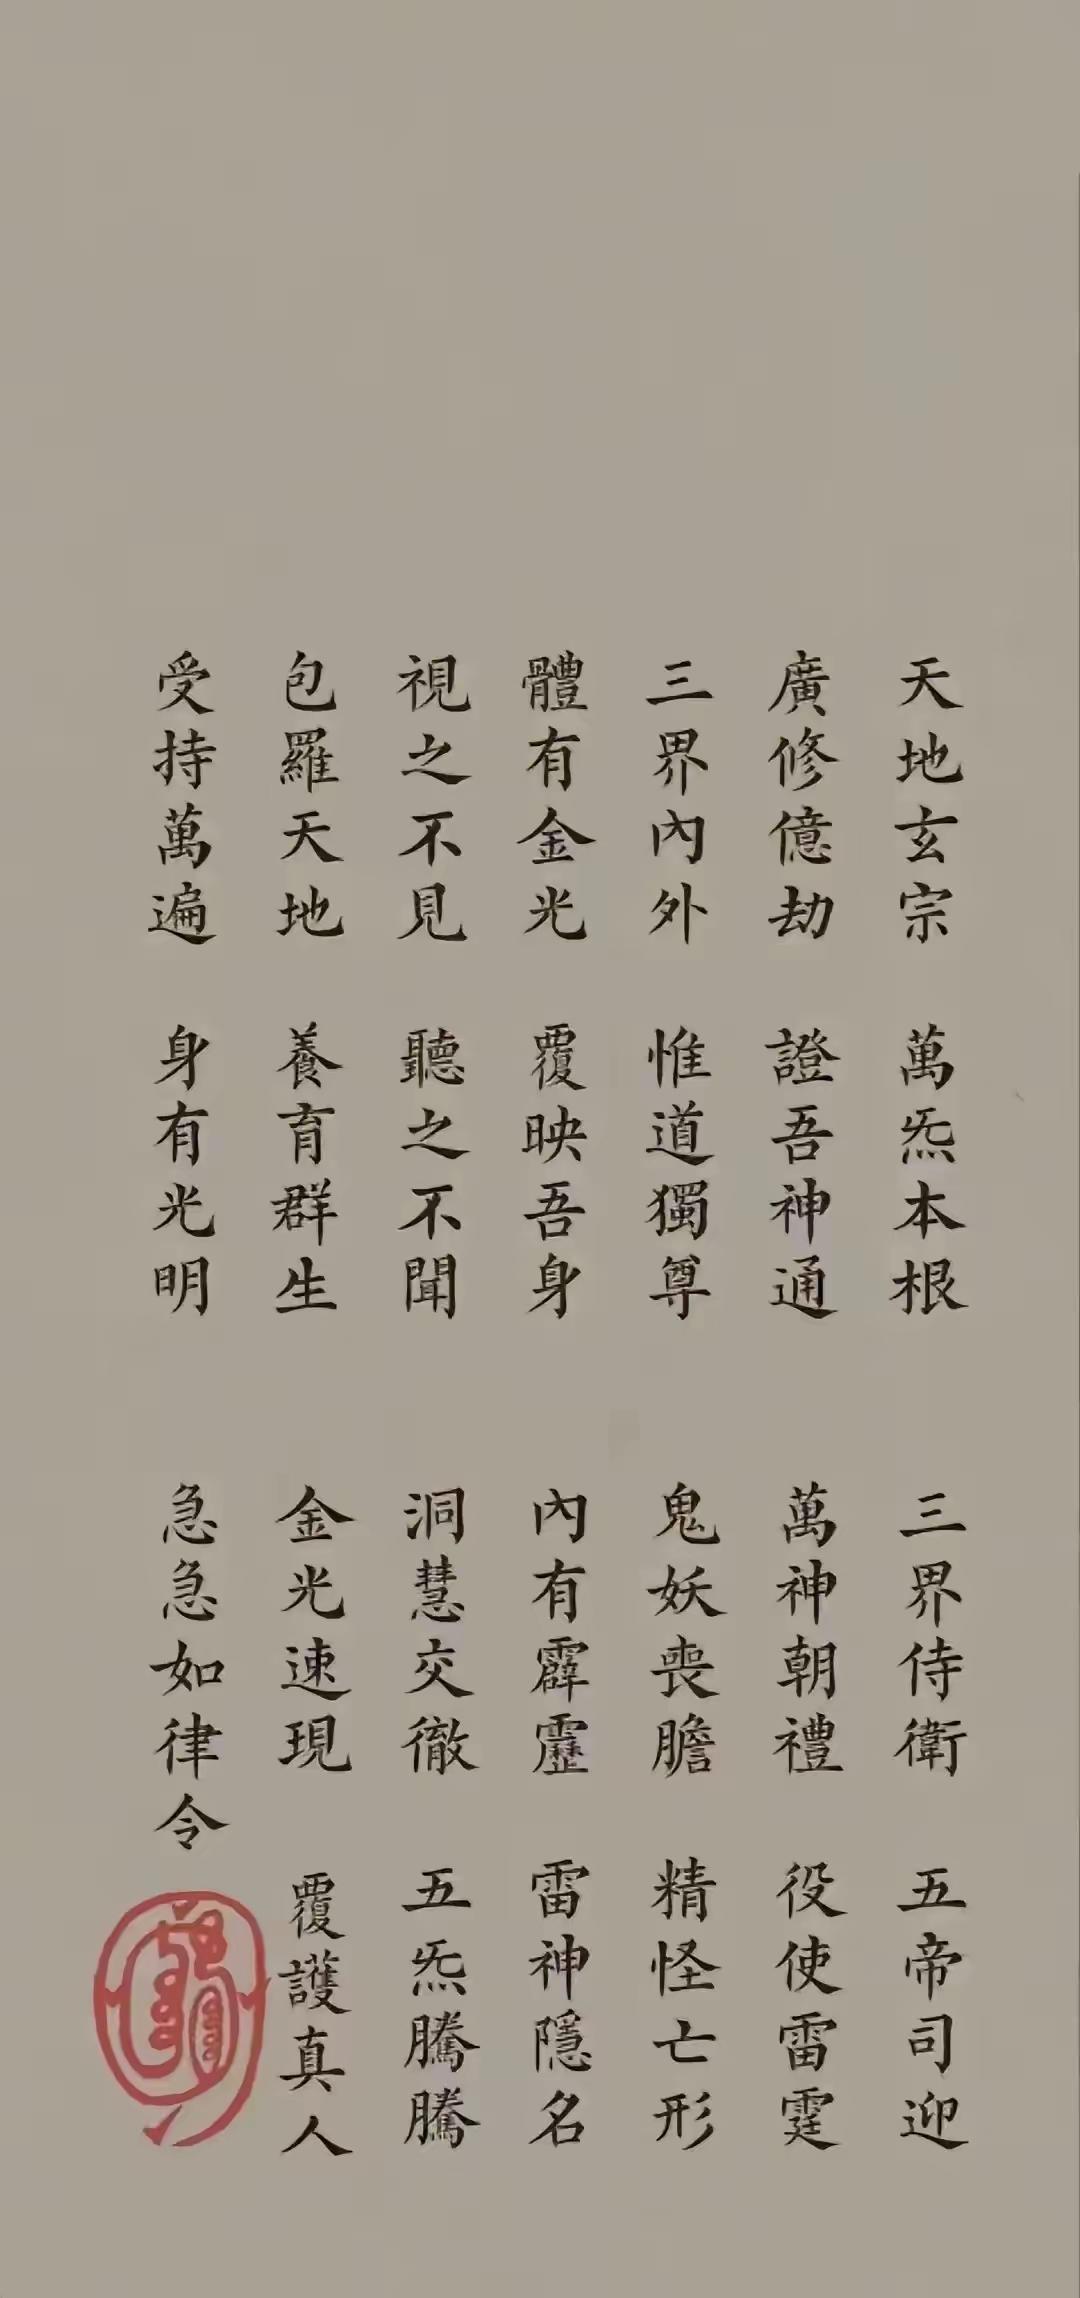 天地玄宗 萬炁本根
廣修億劫 證吾神通
三界內外 惟道獨尊
體有金光 覆映吾身
視之不見 聽之不聞
包羅天地 養育群生
受持萬遍 身有光明
三界侍衛 五帝司迎
萬神朝禮 役使雷霆
鬼妖喪膽 精怪亡形
內有霹靂 雷神隱名
洞慧交徹 五炁騰騰
金光速現 覆護真人
急急如律令